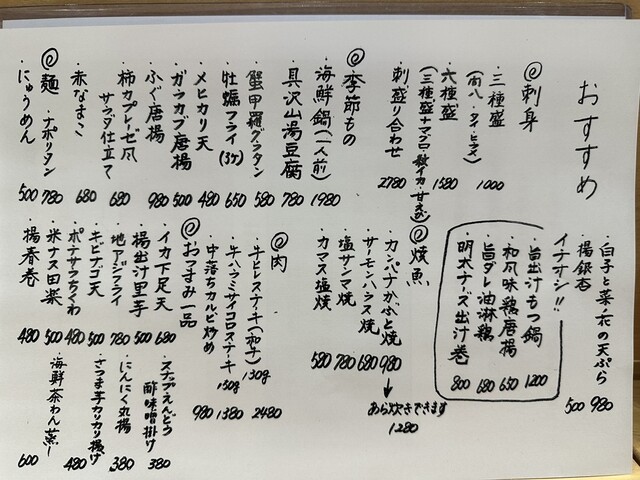 おすすめ
◎刺身
・三種盛
(カンパチ・タイ・ヒラメ) 1000
・六種盛
(三種盛+マグロ・数イカ・甘えび) 1580
・刺盛り合わせ 2780
◎季節もの
・海鮮鍋(一人前) 1980
・具沢山湯豆腐 780
・蟹甲羅グラタン 580
・牡蠣フライ(3ケ) 650
・メヒカリ天 480
・ガラカブ唐揚 500
・ふぐ唐揚 980
・柿カプレーゼ風
サラダ仕立て 680
・赤なまこ 680
◎麺・ナポリタン 780
・にゅうめん 500
・白子と菜ノ花の天ぷら 980
・揚銀杏 500
イチオシ!!
・旨出汁もつ鍋 1200
・和風味鶏唐揚 650
・旨ダレ油淋鶏 680
・明太チーズ出汁巻 800
◎焼魚
・カンパチかぶと焼 980
→あら炊きできます 1280
・サーモンハラス焼 680
・塩サンマ焼 780
・カマス塩焼 580
◎肉
・牛ヒレステーキ(和牛)130g 2480
・牛ハラミサイコロステーキ150g 1380
・中落ちカルビ炒め 980
◎おつまみ一品
・イカ下足天 680
・揚出汁里芋 500
・地アジフライ 780
・キビナゴ天 500
・ポテサラちくわ 480
・米ナス田楽 500
・揚春巻 480
・スナップえんどう
酢味噌掛け 380
・にんにく丸揚 380
・さつま芋カリカリ揚げ 480
・海鮮茶わん蒸し 600